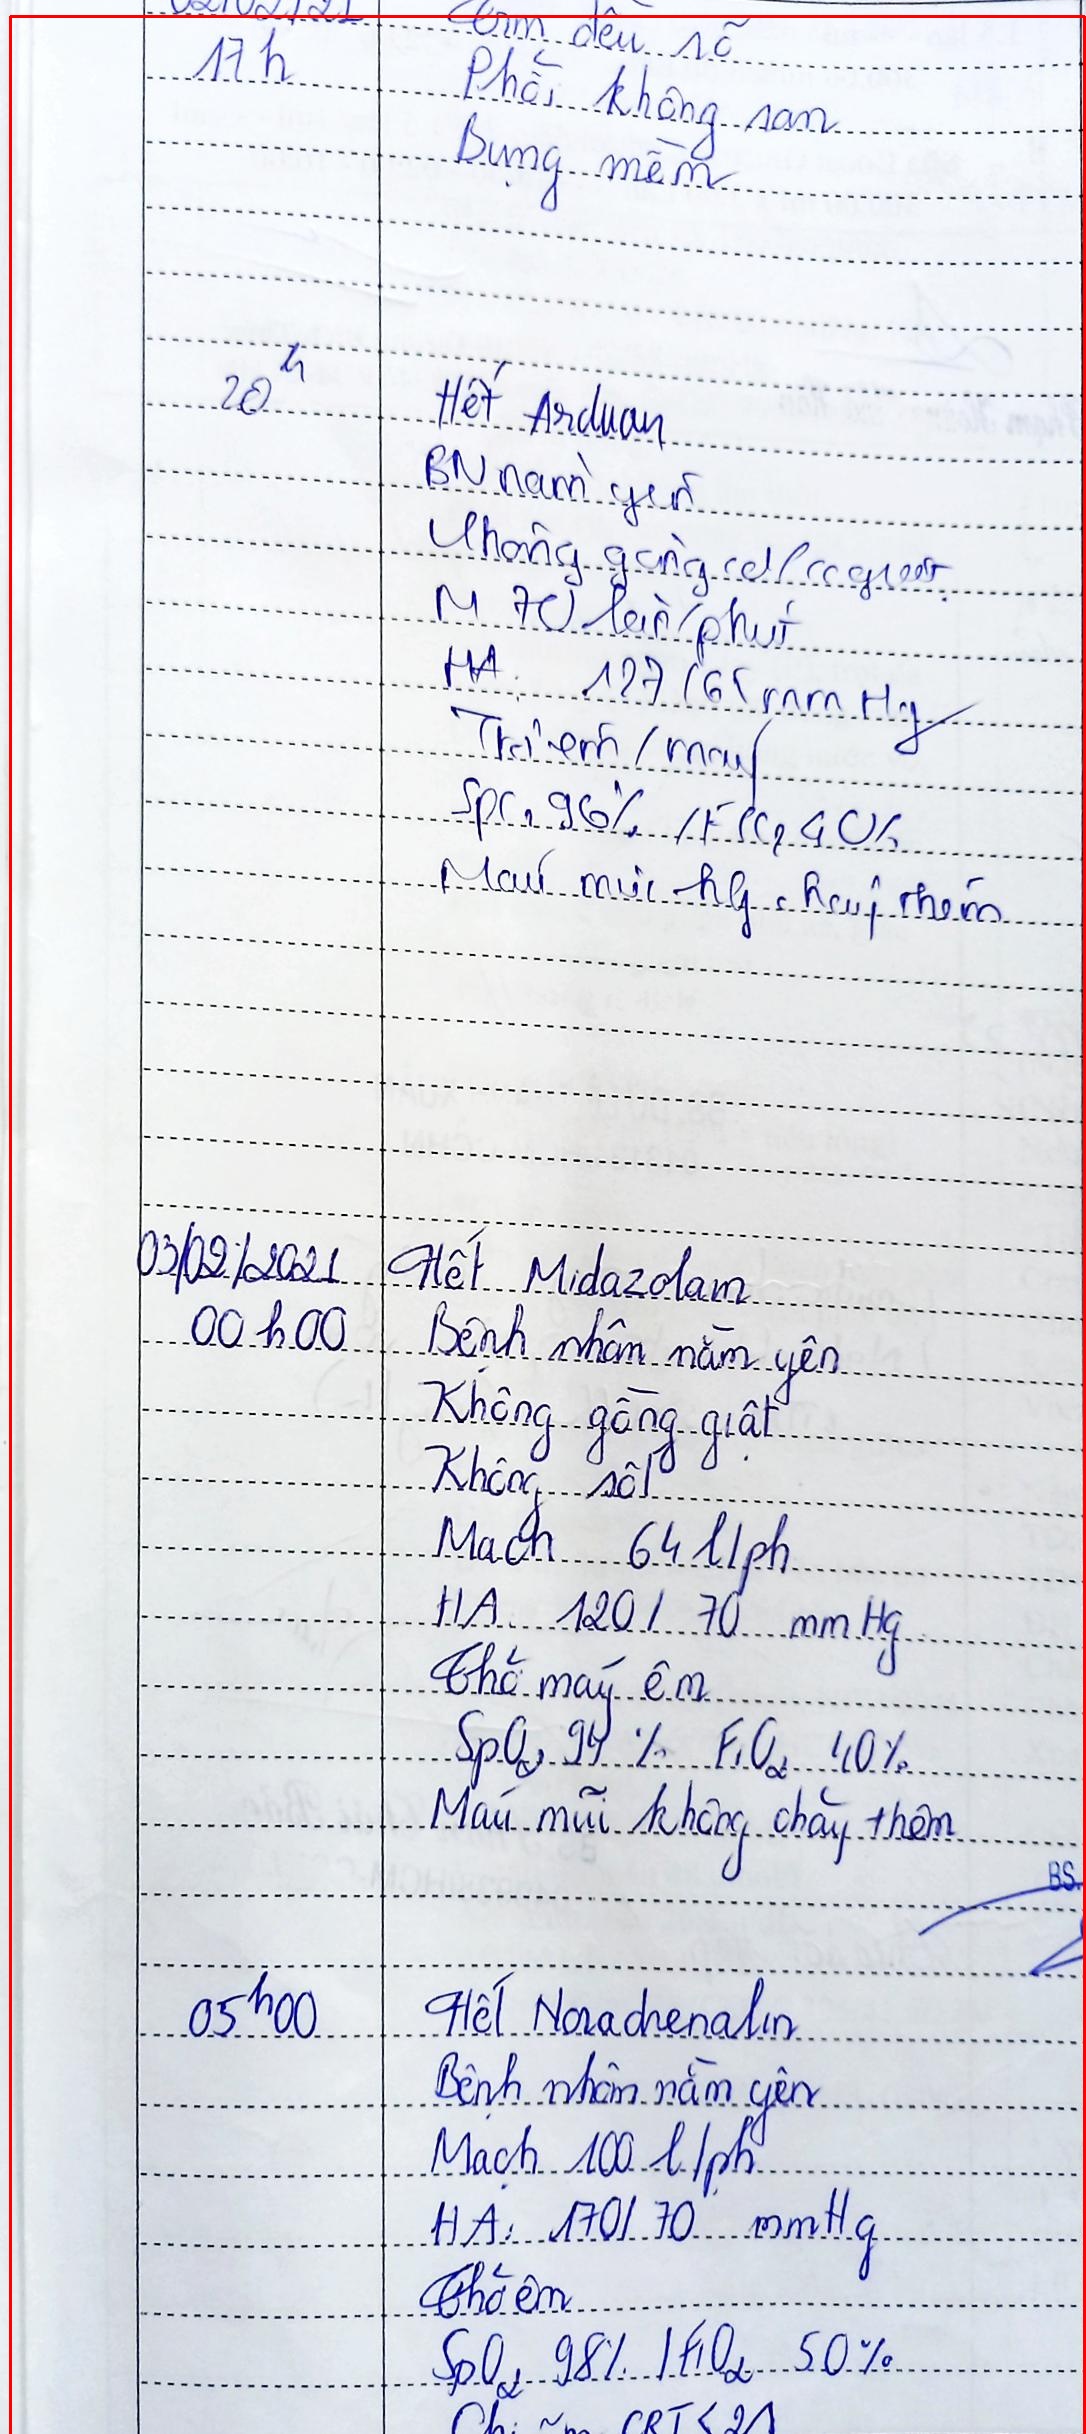 02/02/21 Tim đều rõ
17h Phổi không ran
Bụng mềm
20h Hết Arduan
BN nằm yên
Không gồng
M 70 lần/phút
HA: 127/65 mmHg
Thở êm / máy
SpO2 96% / FiO2 40%
Máu mũi kg chảy thêm
03/02/2021 Hết Midazolam
00h00 Bệnh nhân nằm yên
Không gồng giật
Không sốt
Mạch 64 l/ph
HA 120/70 mmHg
Thở máy êm
SpO2 94% FiO2 40%
Máu mũi không chảy thêm
BS.
05h00 Hết Noradrenalin
Bệnh nhân nằm yên
Mạch 100 l/ph
HA: 170/70 mmHg
Thở êm
SpO2 98% / FiO2 50%
Chi ấm CRT < 2s